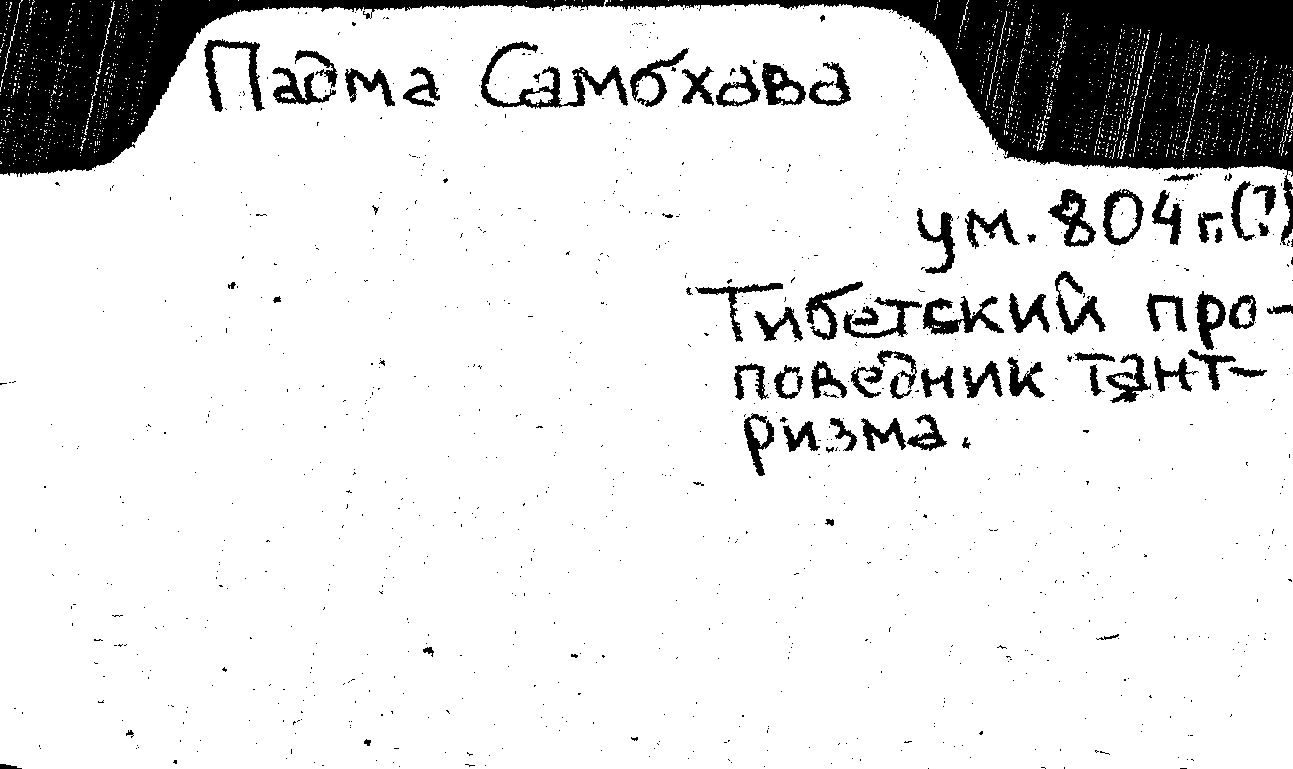 Падма Самбхава
ум. 804 г. (?)
Тибетский про-
поведник тант-
ризма.